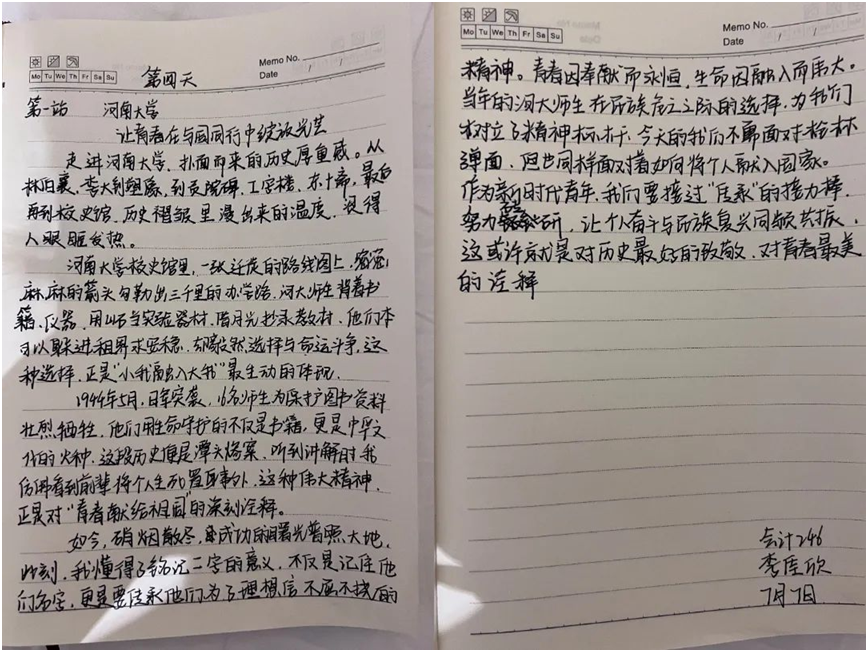 Memo No.
Mo Tu We Th Fr Sa Su
Date / /
第四天
第一站 河南大学
让青春在与国同行中绽放光芒
走进河南大学，扑面而来的历史厚重感。从
林伯襄、李大钊塑像，到贡院碑、工字楼、东十斋，最后
再到校史馆，历史褶皱里漫出来的温度，烫得
人眼眶发热。
河南大学校史馆里，一张迁徙的路线图上，密密
麻麻的箭头勾勒出三千里的办学路，河大师生背着书
籍、仪器，用山石当实验器材，借月光抄录教材，他们本
可以躲进租界求安稳，却毅然选择与命运斗争，这
种选择，正是“小我融入大我”最生动的体现。
1944年5月，日军突袭，16名师生为保护图书资料
壮烈牺牲，他们用生命守护的不仅是书籍，更是中华文
化的火种，这段历史便是潭头惨案，听到讲解时，我
仿佛看到前辈将个人生死置身事外，这种伟大精神，
正是对“青春献给祖国”的深刻诠释。
如今，硝烟散尽，成功的曙光普照大地，
此刻，我懂得了铭记二字的意义，不仅是记住他
们名字，更是要传承他们为了理想信不屈不挠的
Memo No.
Mo Tu We Th Fr Sa Su
Date / /
精神。青春因奉献而永恒，生命因融入而伟大。
当年的河大师生在民族危亡之际的选择，为我们
树立了精神标杆，今天的我们不需面对枪林
弹雨，但也同样面对着如何将个人融入国家。
作为新时代青年，我们要接过“传承”的接力棒，
努力钻研，让个人奋斗与民族复兴同频共振，
这或许就是对历史最好的致敬，对青春最美
的诠释
会计246
李佳欣
7月7日